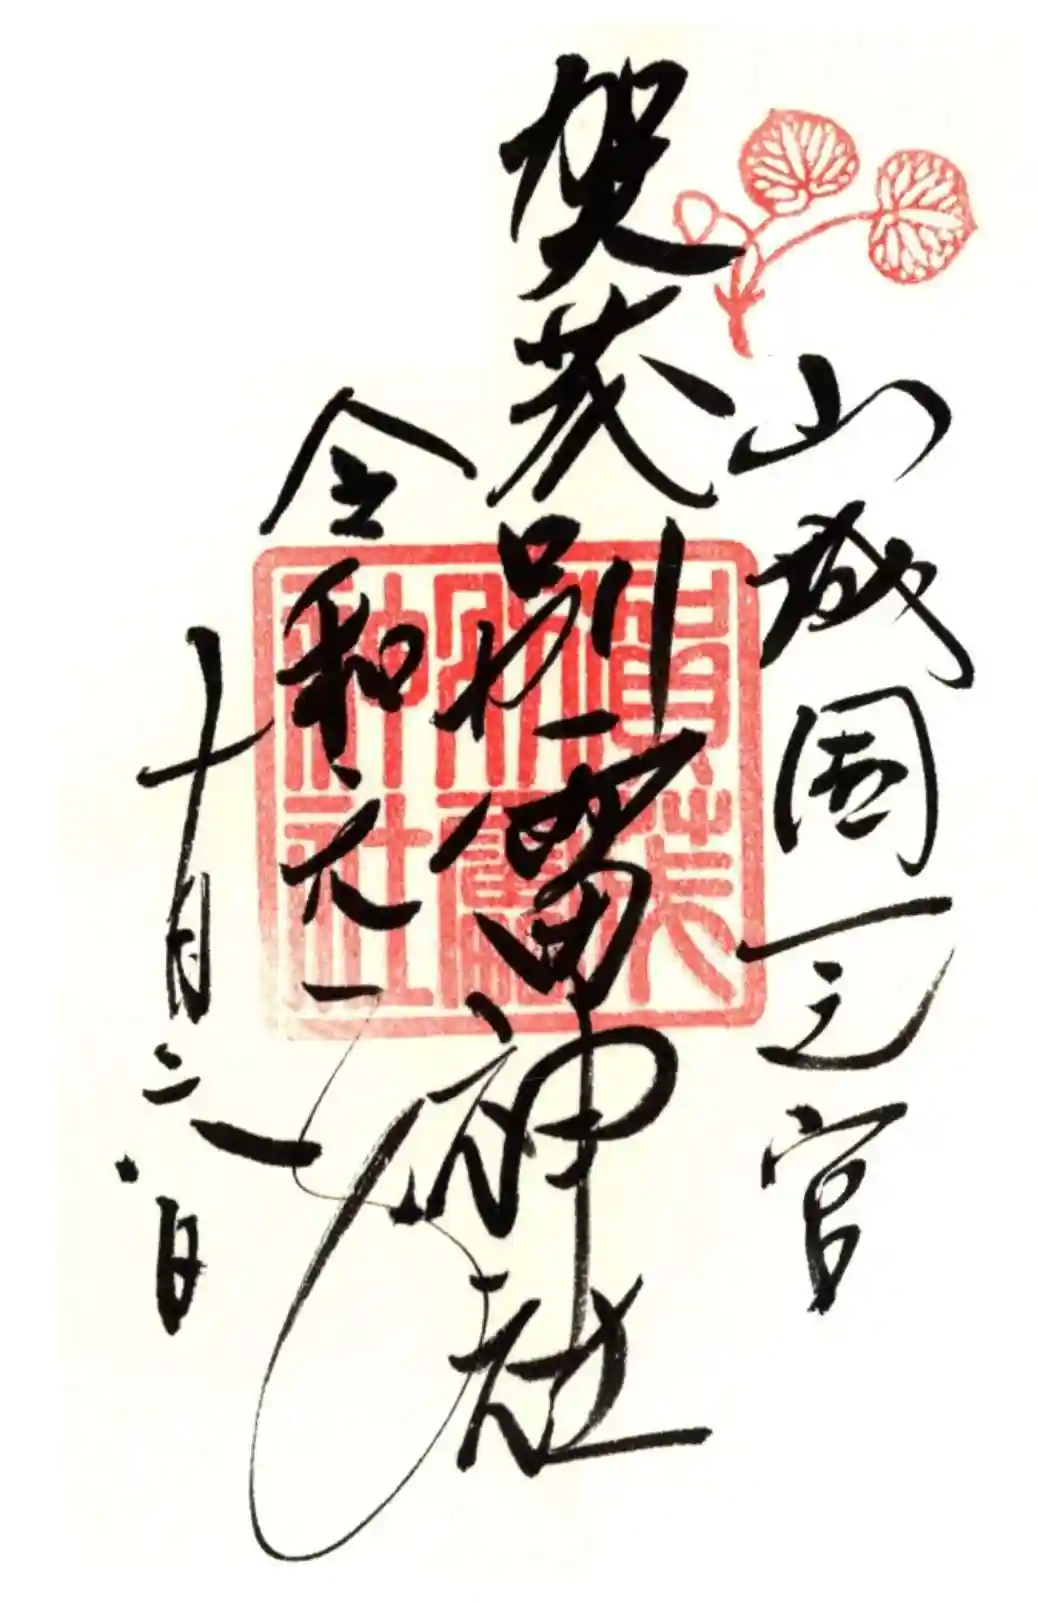 山城国一之宮
賀茂別雷神社
令和元年
十月二八日
賀茂
別雷
神社